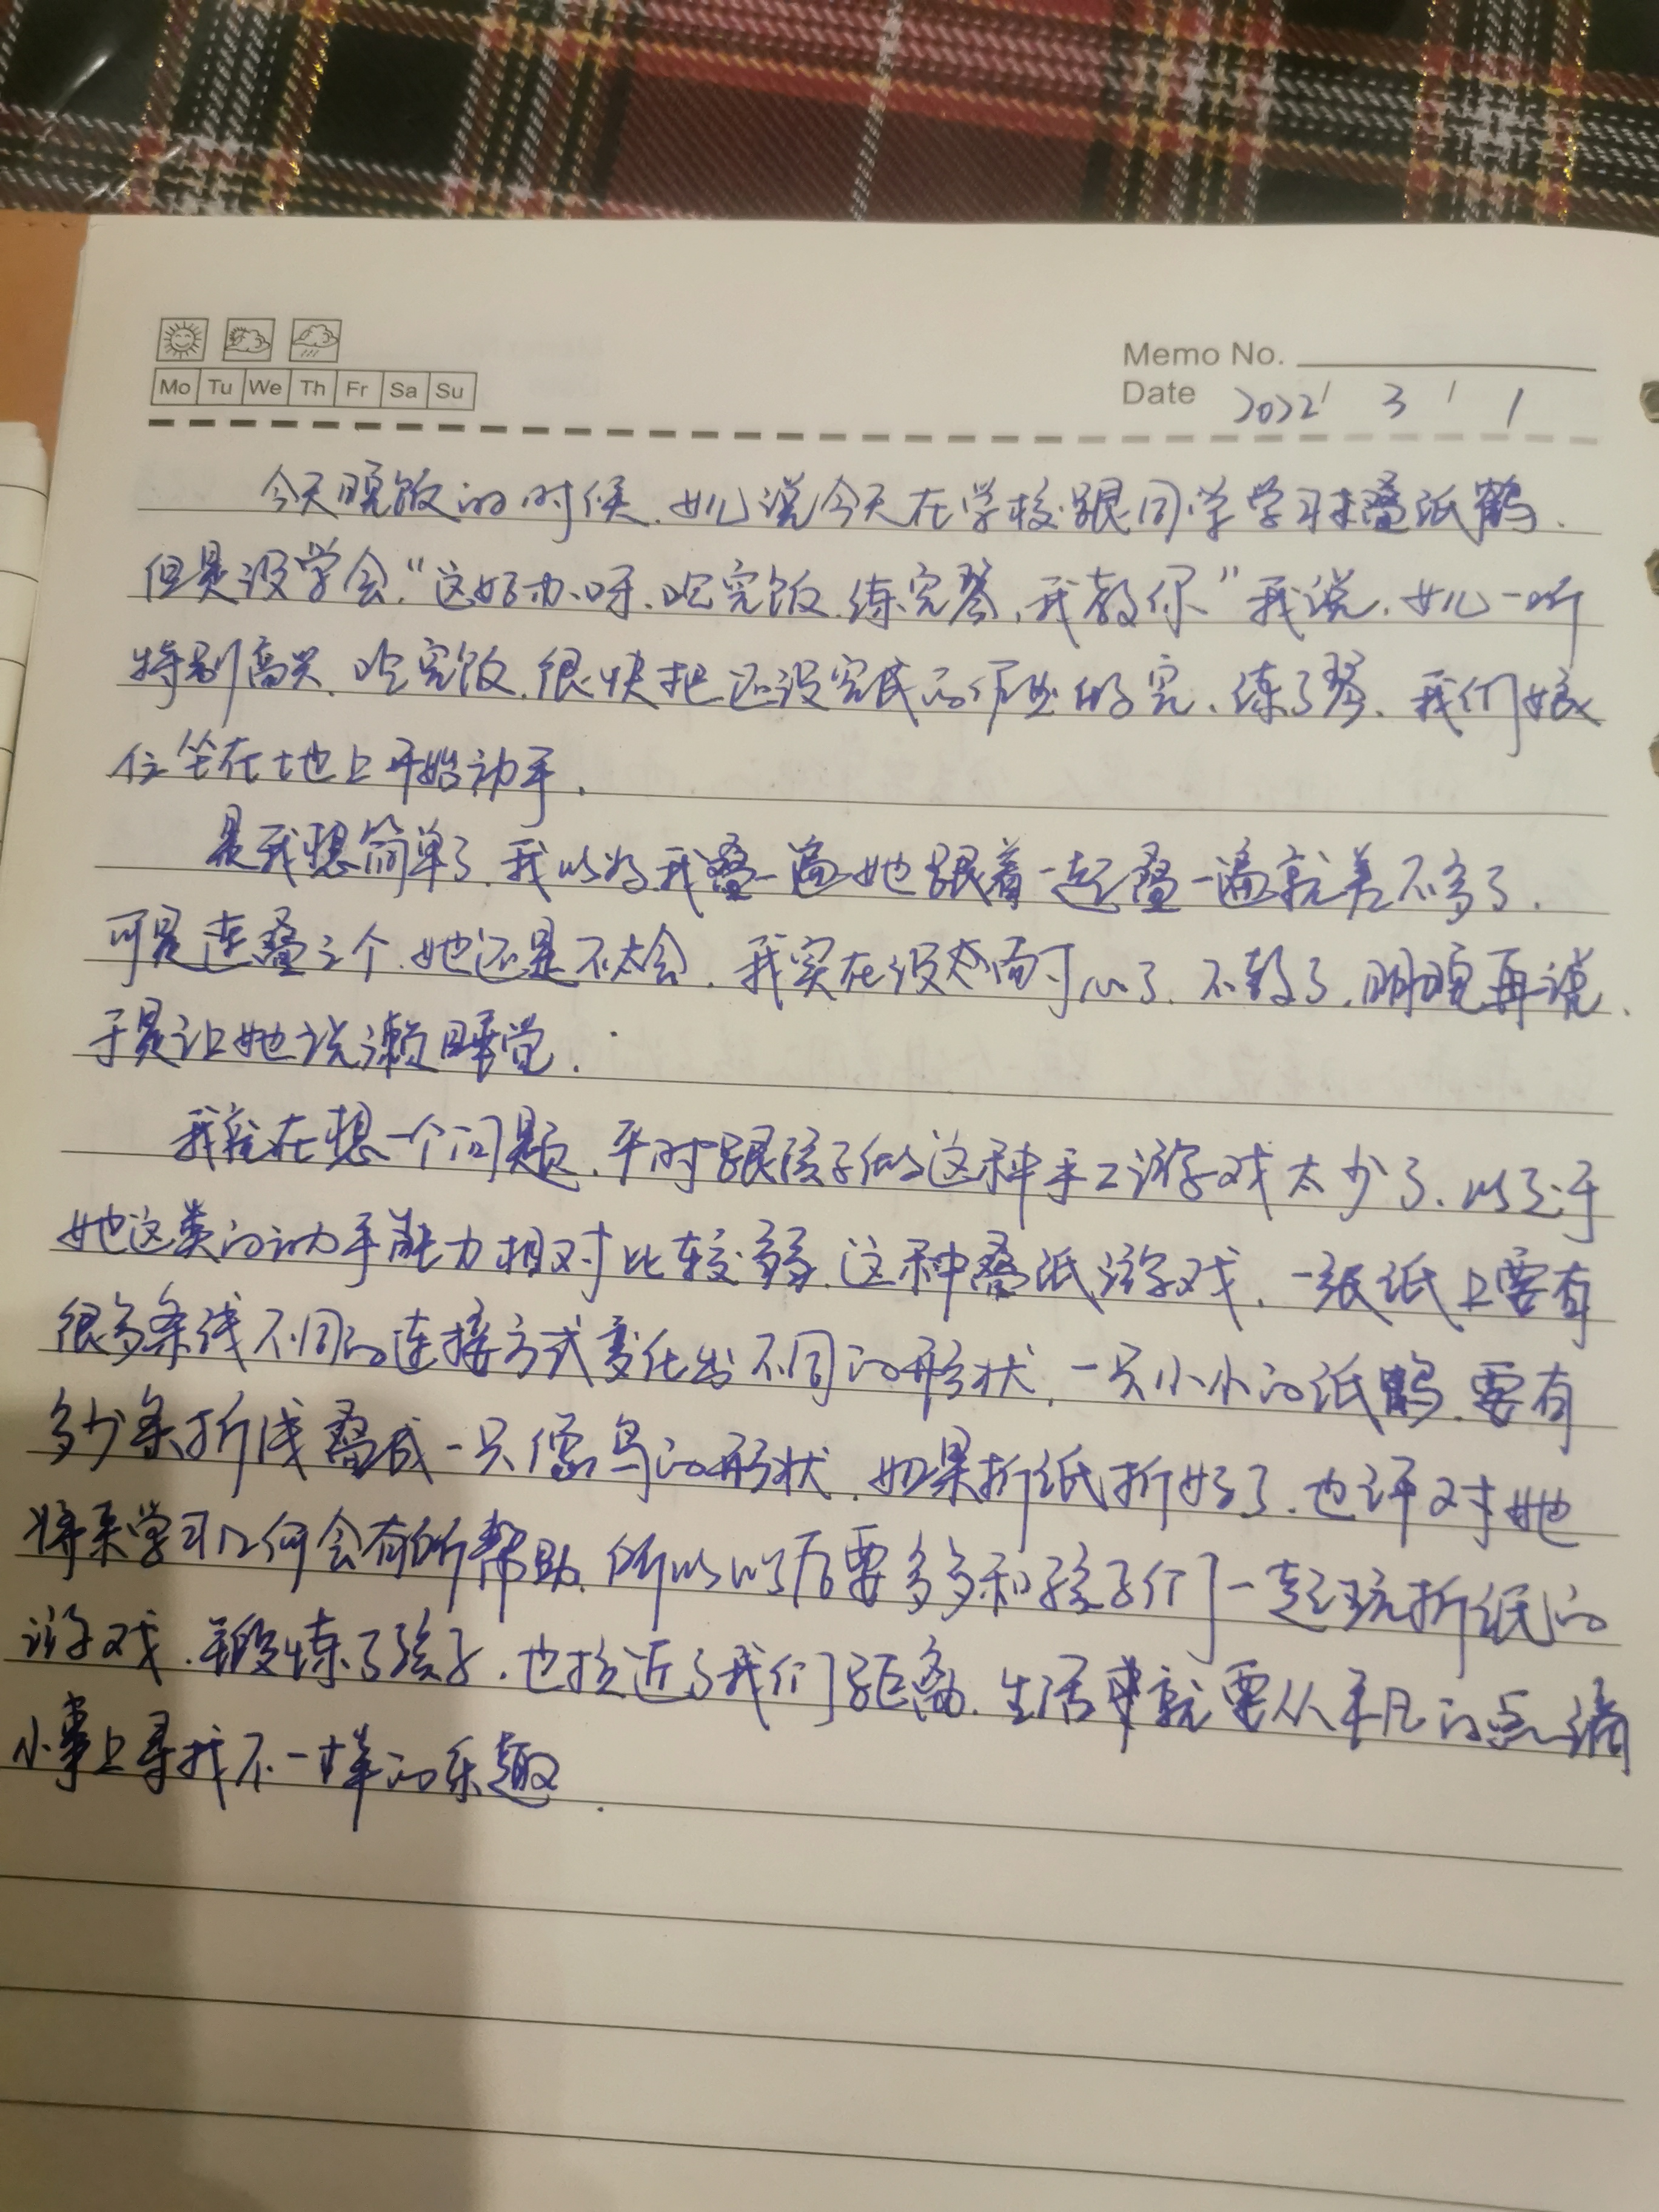 Mo Tu We Th Fr Sa Su
Memo No.
Date 2022/ 3 / 1
今天晚饭的时候，女儿说今天在学校跟同学学习叠纸鹤，
但是没学会，“这好办呀，吃完饭，练完琴，我教你”我说，女儿一听
特别高兴，吃完饭，很快把还没完成的作业做完，练了琴，我们娘
俩坐在地上开始动手。
是我想简单了，我以为我叠一遍她跟着一起叠一遍就差不多了，
可是连叠三个，她还是不太会，我实在没太耐心了，不教了，明晚再说，
于是让她洗漱睡觉。
我就在想一个问题，平时跟孩子做这种手工游戏太少了，以至于
她这类的动手能力相对比较弱，这种叠纸游戏，一张纸上要有
很多条线不同的连接方式变化出不同的形状，一只小小的纸鹤，要有
多少条折线叠成一只像鸟的形状，如果折纸折好了，也许对她
将来学习几何会有所帮助，所以以后要多多和孩子们一起玩折纸的
游戏，锻炼了孩子，也拉近了我们距离，生活就要从平凡的点滴
小事上寻找不一样的乐趣。